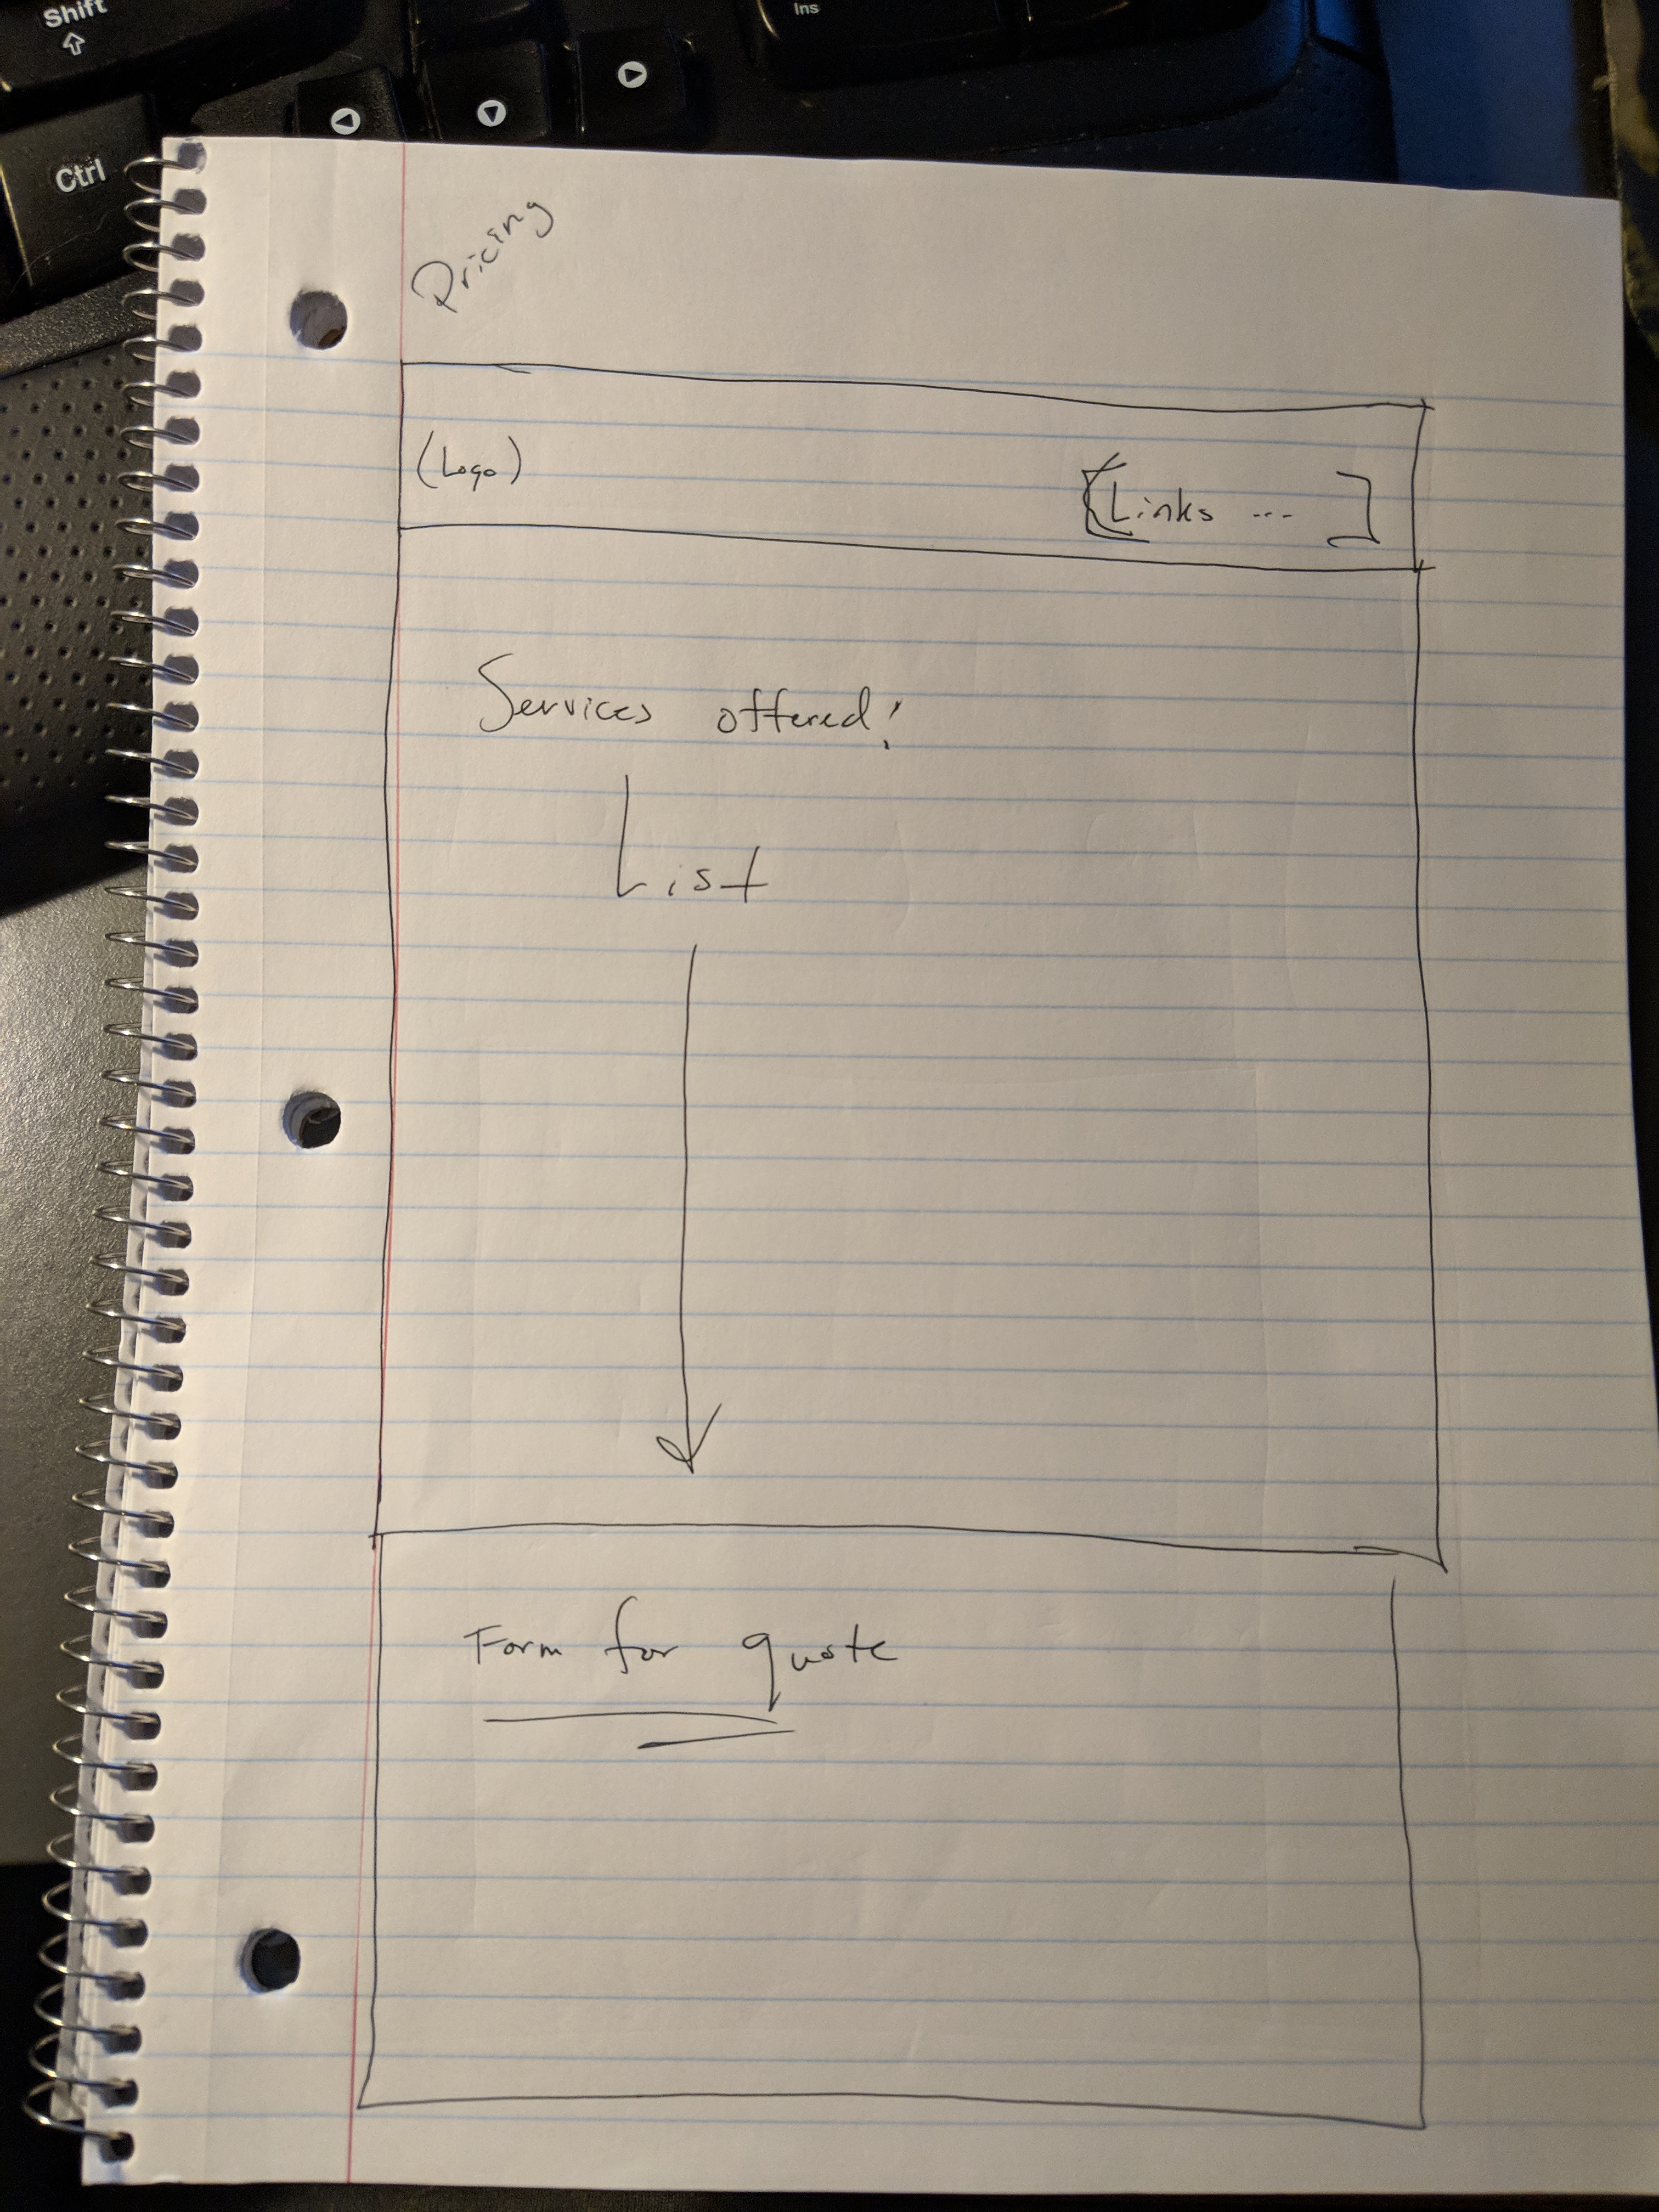 Shift
Ins
Ctrl
Pricing
(Logo)
[Links ... ]
Services offered!
List
Form for quote